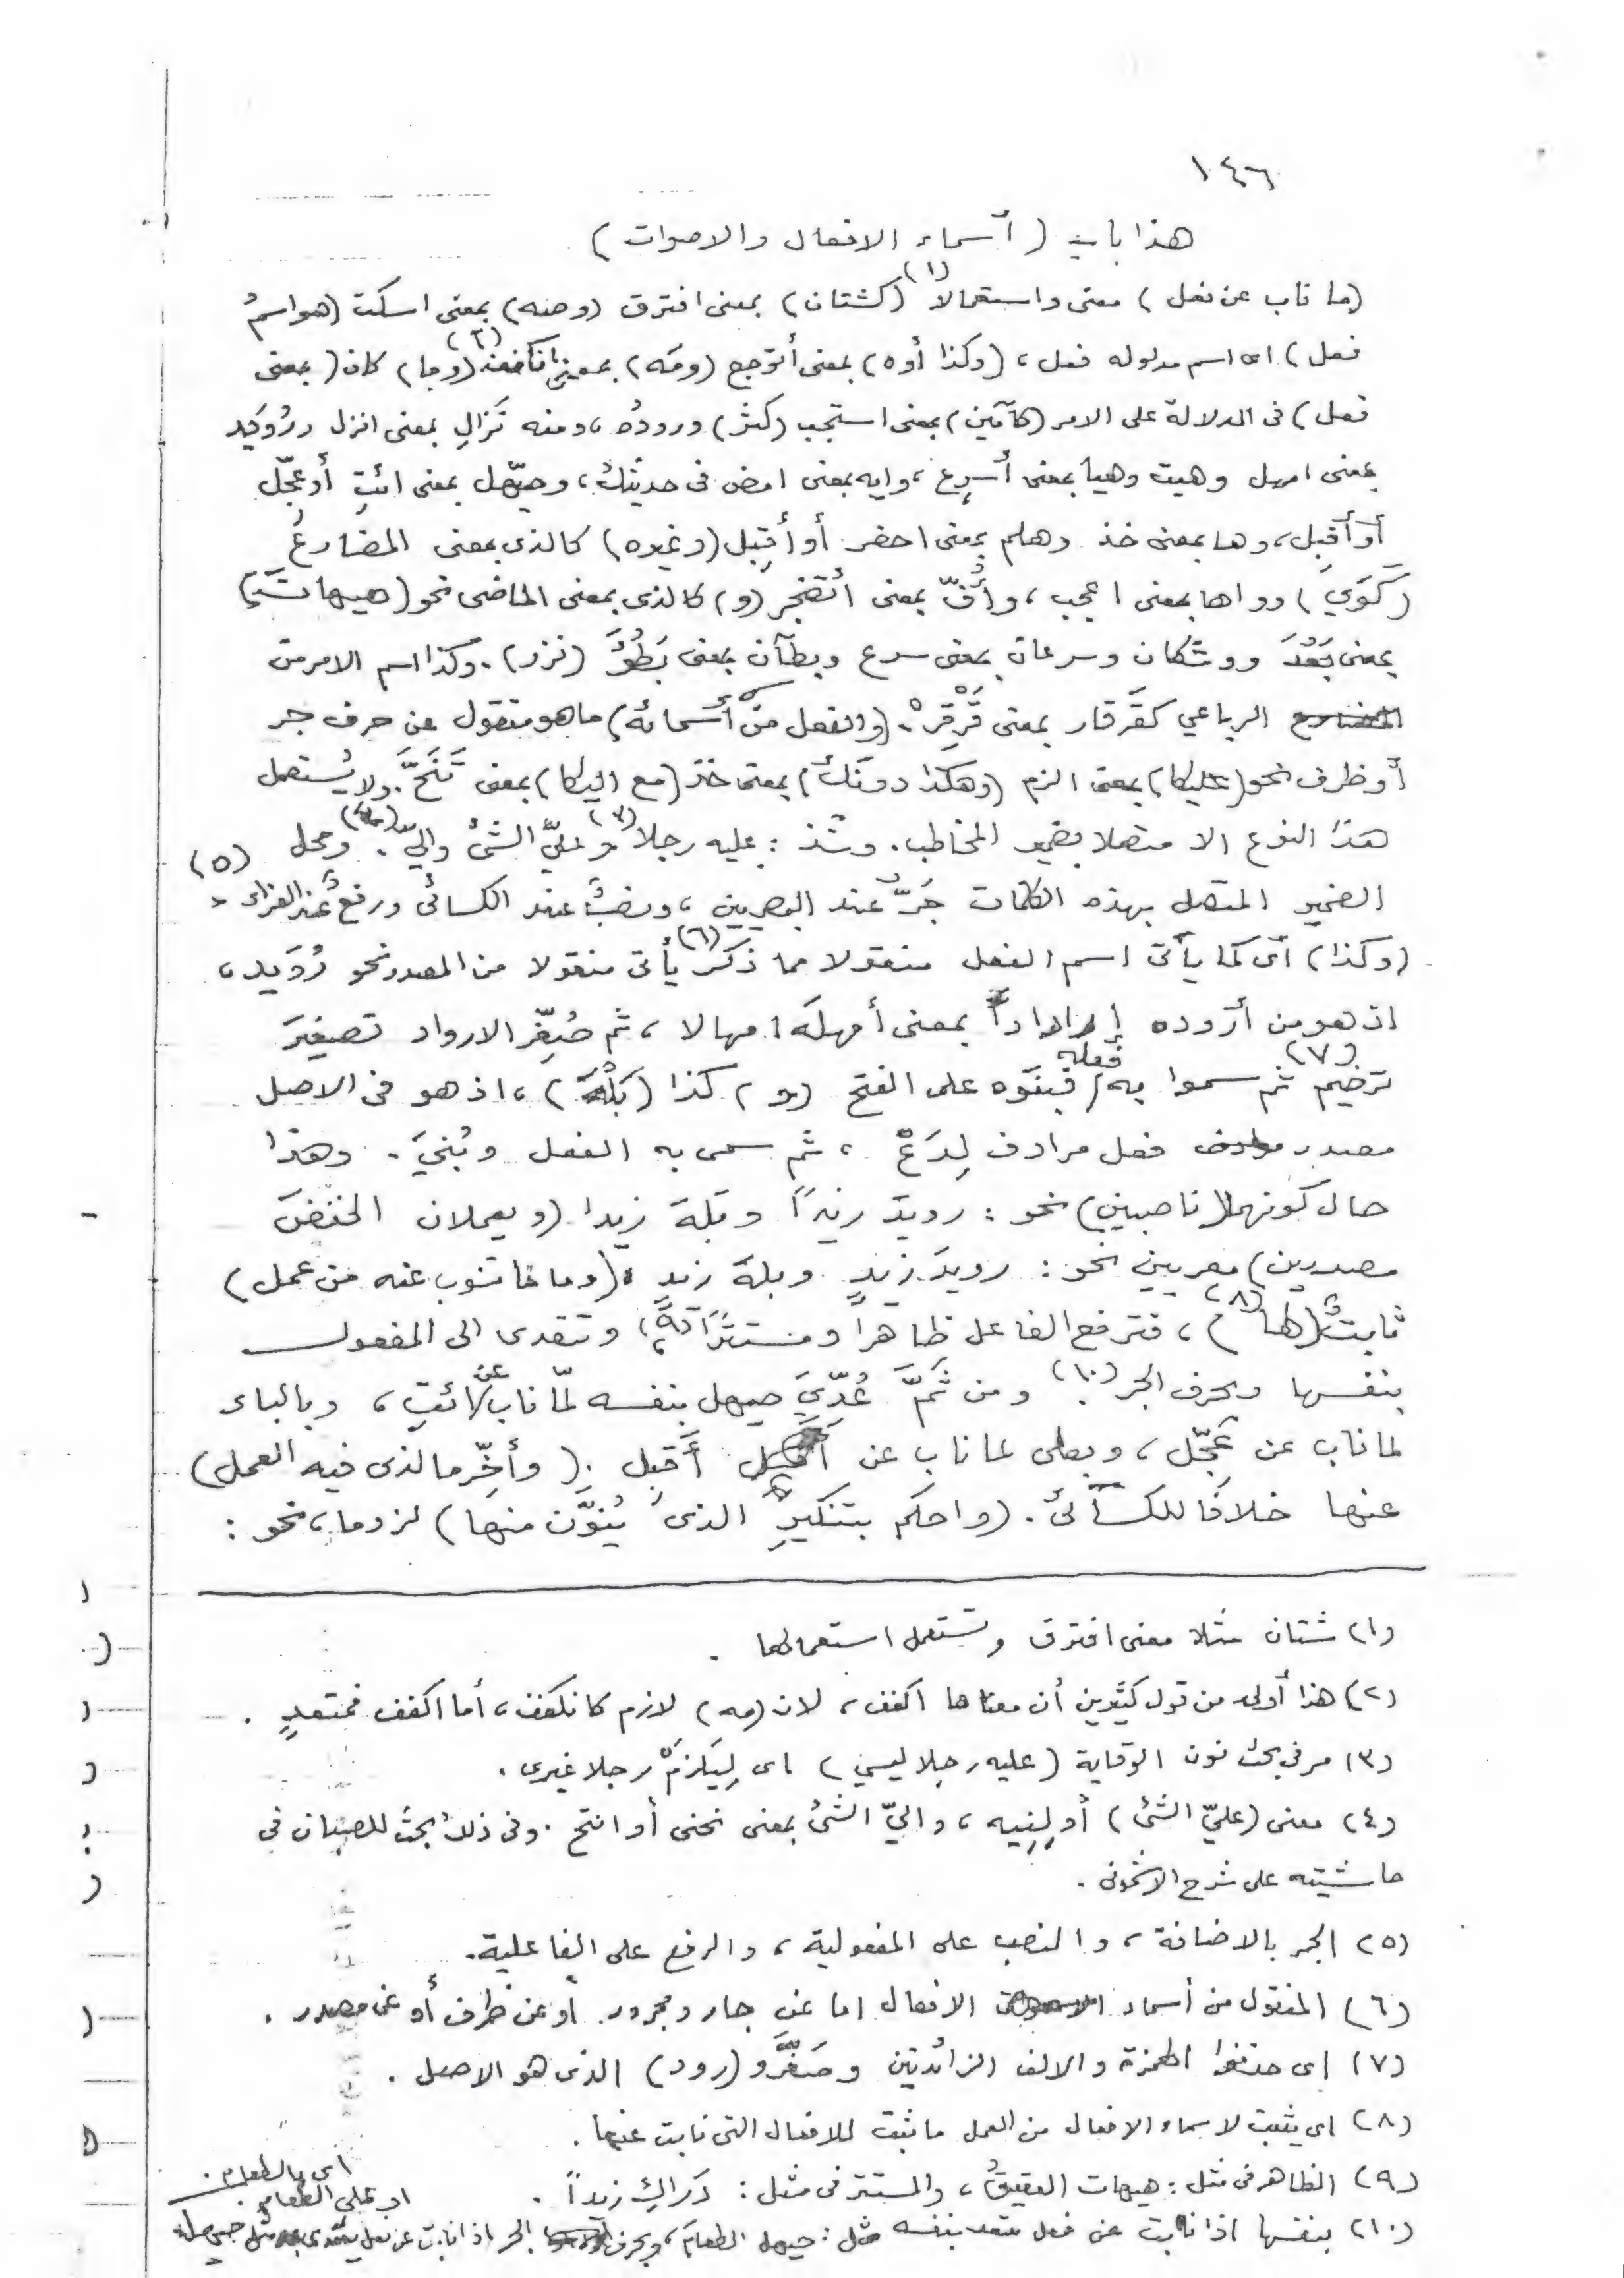 ١٤٦
هذا باب (أسماء الافعال والاصوات)
(ما ناب عن فعل) معنى واستعمالاً (١) (كشتان) بمعنى افترق (وصه) بمعنى اسكت (هو اسمُ
فعل) اى اسم مدلوله فعل، (وكذا أوه) بمعنى أتوجع (ومَه) بمعنى انكفف (٢) (وما) كان (بمعنى
فعل) فى الدلالة على الامر (كآمين) بمعنى استجب (كثر) ورودُه، ومنه نَزالِ بمعنى انزل ورُوَيد
بمعنى امهل وهيت وهيا بمعنى أسرِع، وايه بمعنى امض فى حديثك، وحيّهل بمعنى ائتِ أو عجّل
أو أَقبِل، وها بمعنى خذ وهلم بمعنى احضر أو أقبِل (وغيره) كالذى بمعنى المضارعُ
(كوَيْ) وواها بمعنى اعجب، وأُفّ بمعنى أتضجر (و) كالذى بمعنى الماضى نحو (هيهاتَ)
بمعنى بَعُدَ ووشكان وسرعان بمعنى سرع وبطآن بمعنى بَطُؤَ (نزر). وكذا اسم الامر من
الرباعي كقَرقار بمعنى قَرْقِرْ. (والفعل من أسمائه) ما هو منقول عن حرف جر
أو ظرف نحو (عليكا) بمعنى الزم (وهكذا دونك) بمعنى خذ (مع اليكا) بمعنى تَنَحَّ. ولا يُستعمل
هذا النوع الا متصلا بضمير المخاطب. وشذ: عليه رجلا (٣) وعليَّ الشئ واليّ (٤). ومحل
الضمير المتصل بهذه الكلمات جَرٌّ عند البصريين، ونصبٌ عند الكسائى ورفعٌ عند الفراء. (٥)
(وكذا) أى كما يأتى اسم الفعل منقولا مما ذكر (٦) يأتى منقولا من المصدر نحو رُوَيد،
اذ هو من أروده إرواداً بمعنى أمهله امهالا، ثم صُغِّر الارواد تصغيرَ
ترخيم (٧) ثم سموا به فعله فبنَوه على الفتح (و) كذا (بَلْهَ)، اذ هو فى الاصل
مصدر فعل مرادف لِدَعْ، ثم سمى به الفعل وبُنيَ. وهذا
حال كونهما (ناصبين) نحو: رويدَ زيداً وبَلهَ زيدا (ويعملان الخفضَ
مصدرين) معربين نحو: رويدَ زيدٍ وبلهَ زيدٍ، (وما لما تنوب عنه من عمل)
ثابتٌ (لها) (٨)، فترفع الفاعل ظاهراً ومستتراً (٩)، وتتعدى الى المفعول
بنفسها وبحرف الجر (١٠). ومن ثَمَّ عُدّيَ حيهل بنفسه لمّا ناب عن ائتِ، وبالباء
لما ناب عن عَجّل، وبعلى لما ناب عن أَقبِل. (وأخّر ما لذى فيه العمل)
عنها خلافًا للكسائى. (واحكم بتنكيرِ الذى يُنوَّن منها) لزوما، نحو:
(١) شتان مثلا معنى افترق وتستعمل استعمالها.
(٢) هذا أولى من قول كثيرين أن معناها اكفف، لان (مه) لازم كانكفف، أما اكفف فمتعدٍ.
(٣) مر فى بحث نون الوقاية (عليه رجلا ليسي) اى لِيَلزَمْ رجلا غيرى.
(٤) معنى (عليّ الشئ) أولِنِيه، واليّ الشئ بمعنى نحنى أو انتح. وفى ذلك بحث للصبان فى
حاشيته على شرح الاشمونى.
(٥) الجر بالاضافة، والنصب على المفعولية، والرفع على الفاعلية.
(٦) المنقول من أسماء الافعال اما عن جار ومجرور. أو عن ظرف أو عن مصدر.
(٧) اى حذفوا الهمزة والالف الزائدتين وصَغَّرو (رود) الذى هو الاصل.
(٨) اى يثبت لاسماء الافعال من العمل ما ثبت للافعال التى نابت عنها.
(٩) الظاهر فى مثل: هيهات العقيقُ، والمستتر فى مثل: دَراكِ زيداً.
(١٠) بنفسها اذا نابت عن فعل متعد بنفسه مثل: حيهل الطعامَ، وبحرف الجر اذا نابت عن فعل يتعدى به مثل حيهل
او على الطعام.
اى بالطعام.